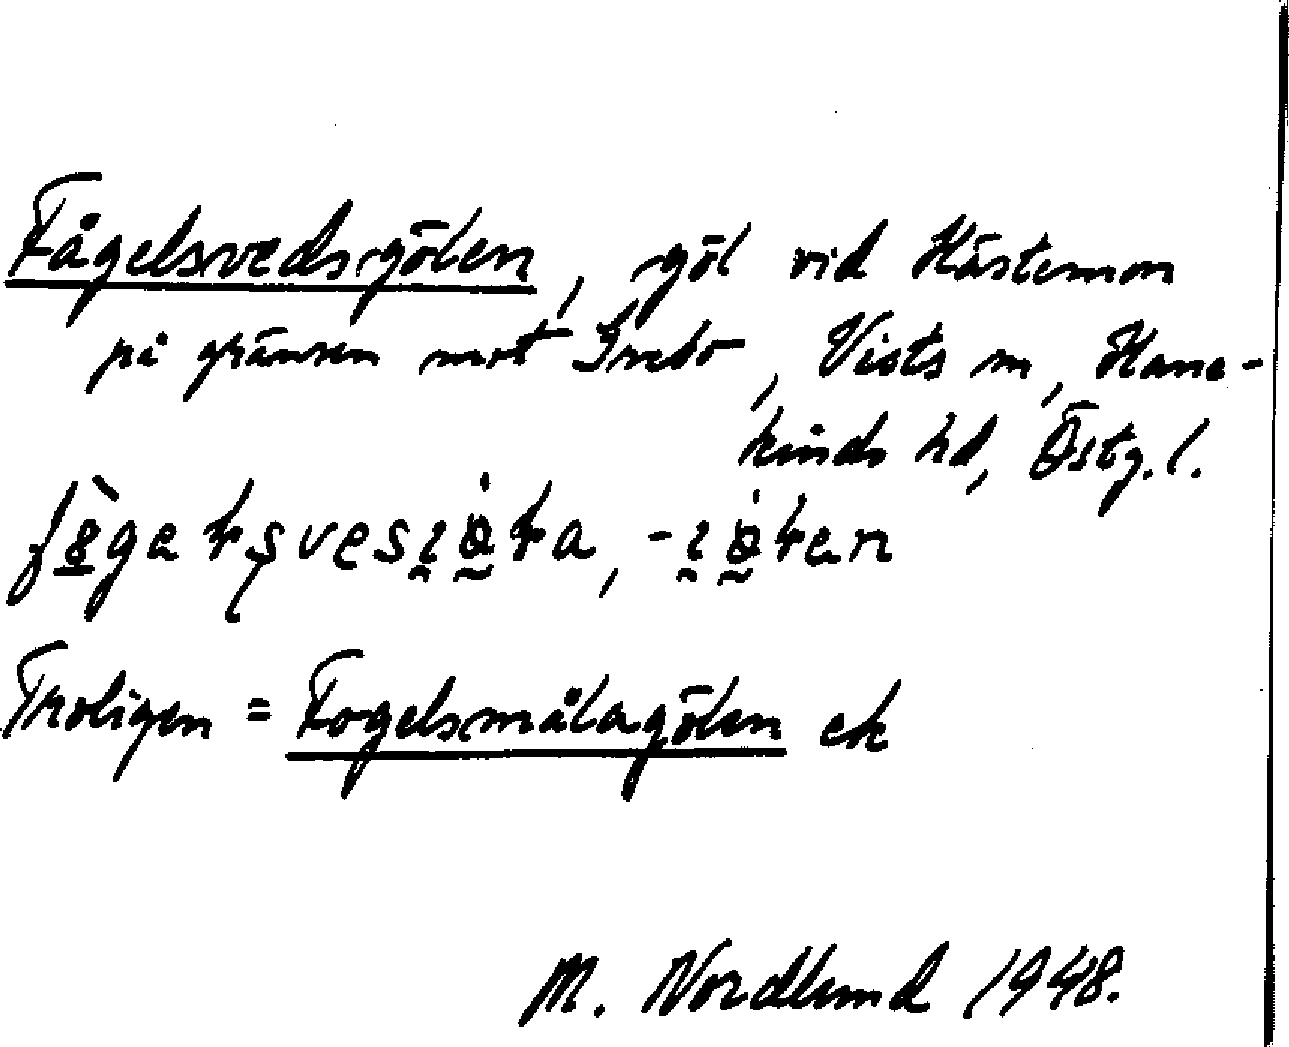 Fågelsvedsgölen, göl vid Hästemon
på gränsen mot Grebo, Vists sn, Hane-
kinds hd, Östg. l.
Troligen = Fogelsmålagölen ek
M. Nordlund 1948.